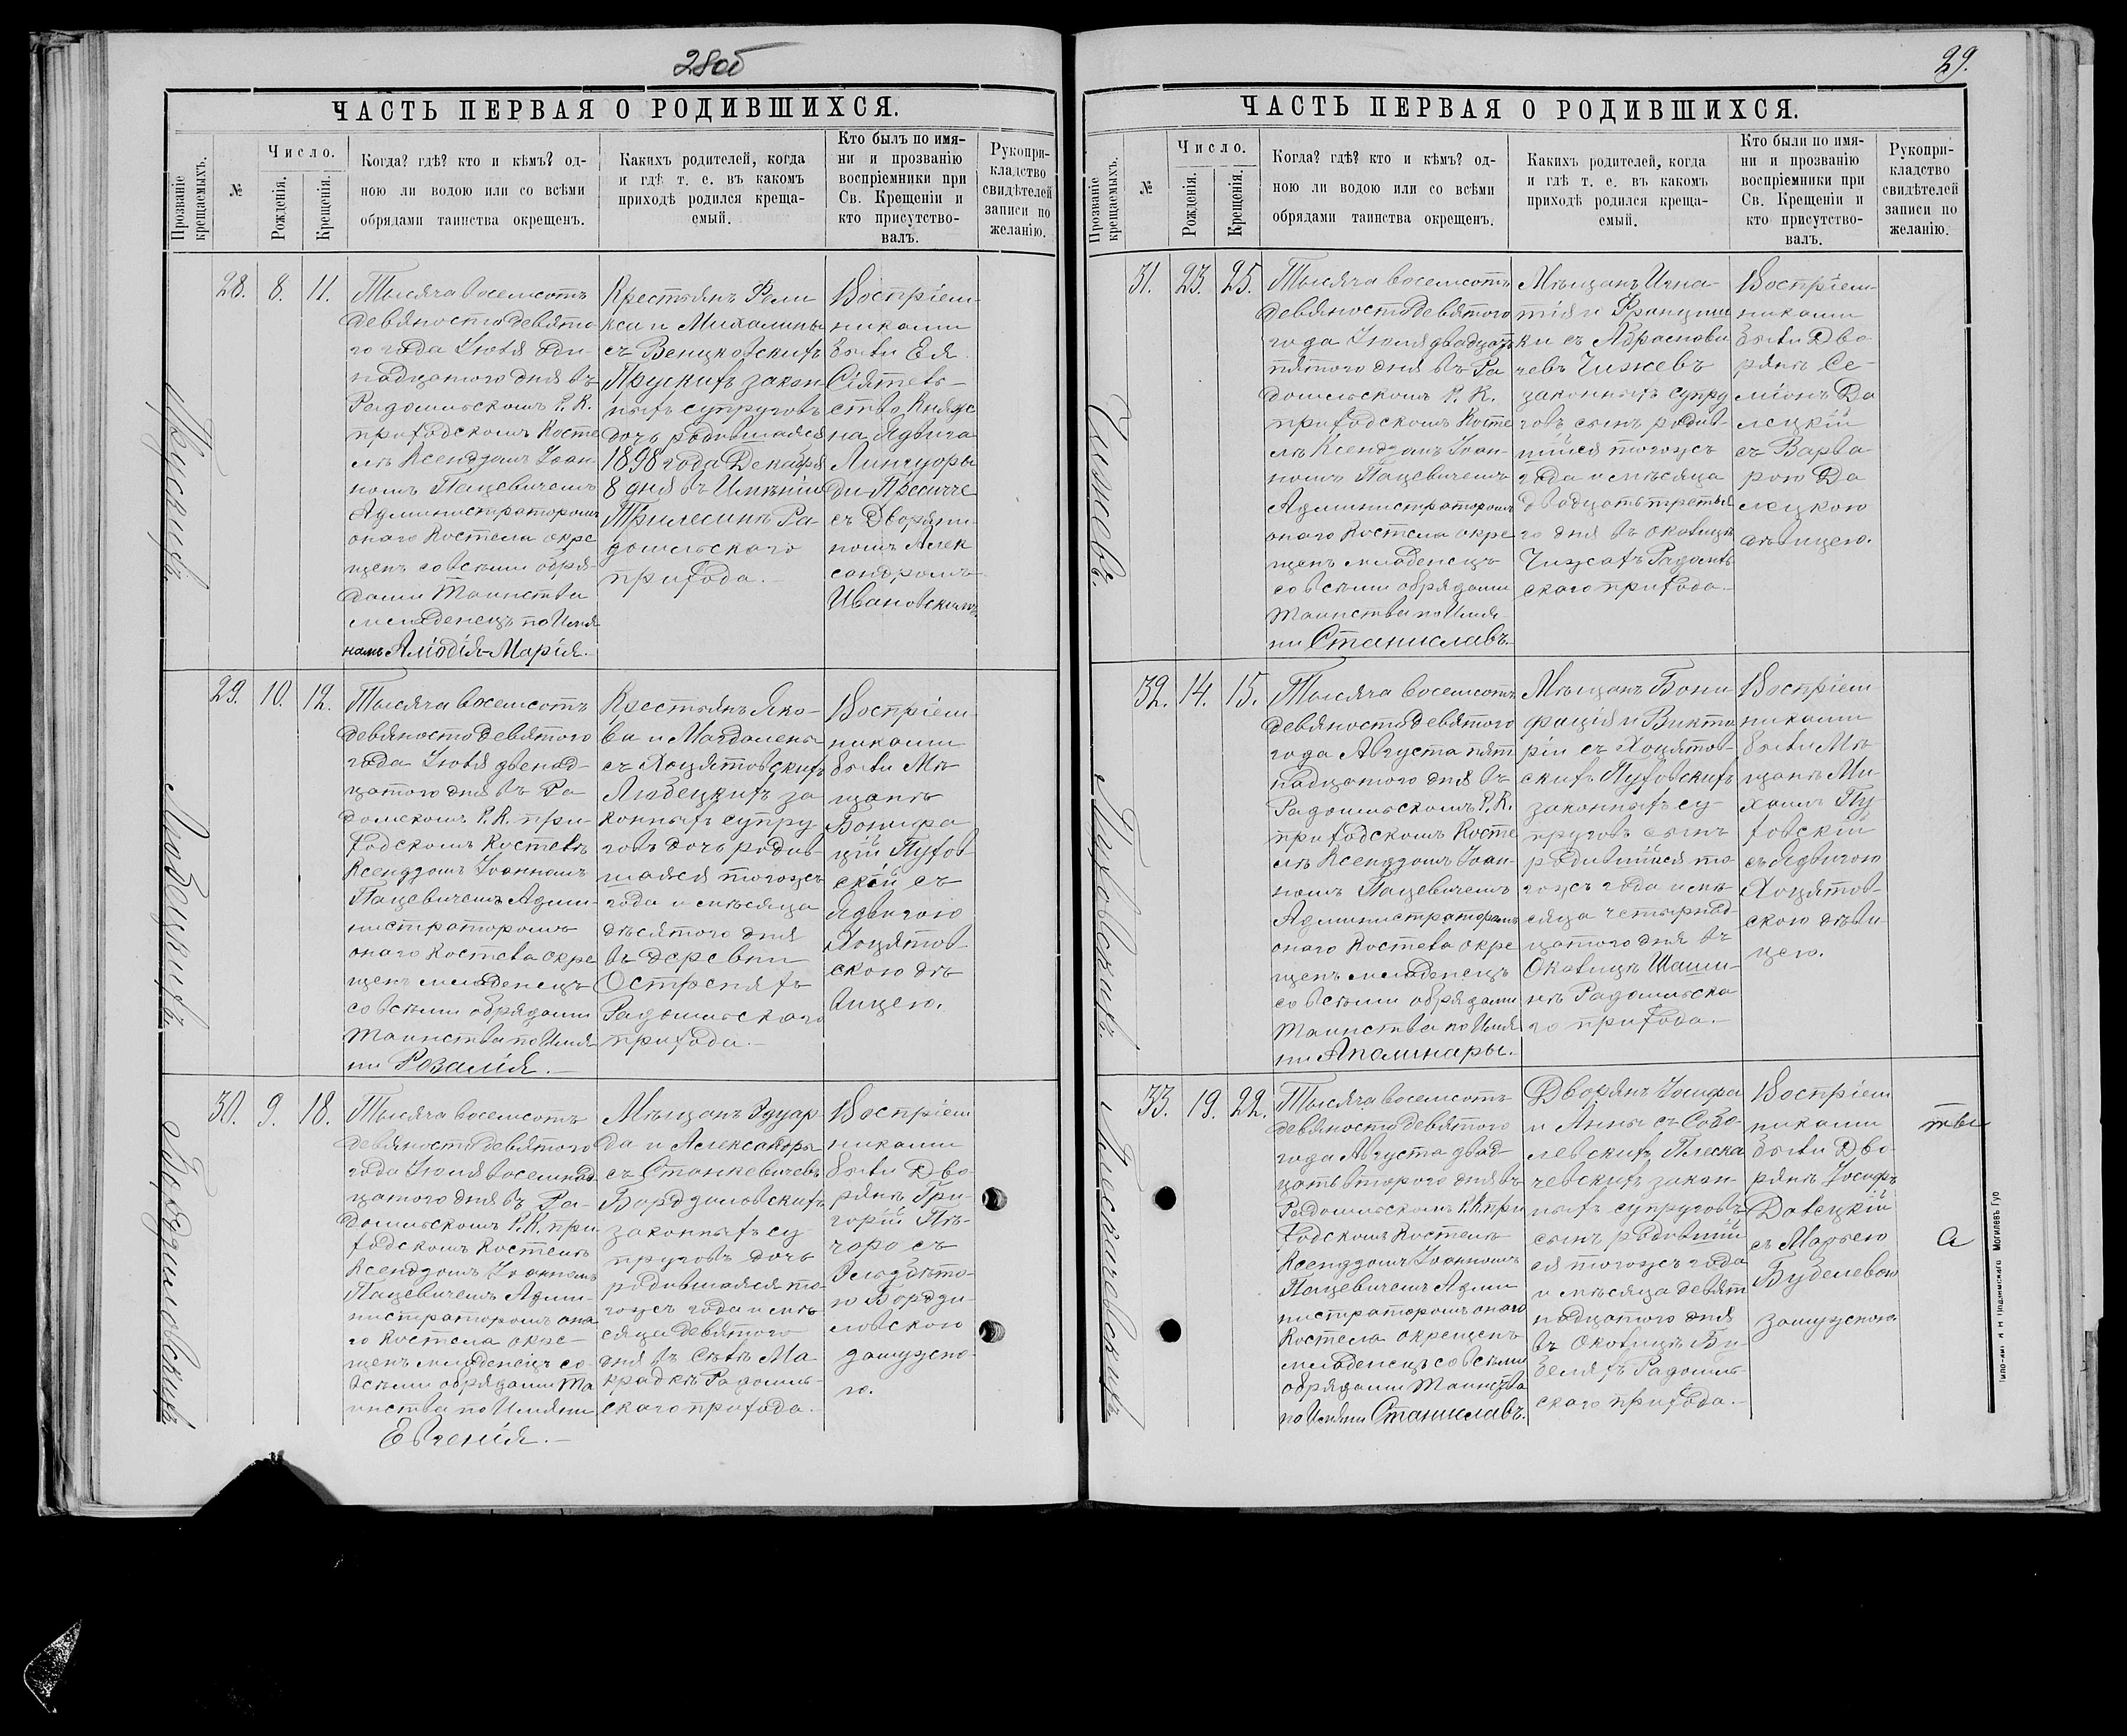 28об
ЧАСТЬ ПЕРВАЯ О РОДИВШИХСЯ.
Прозваніе крещаемыхъ.
№
Число.
Рожденія.
Крещенія.
Когда? гдѣ? кто и кѣмъ? од-
ною ли водою или со всѣми
обрядами таинства окрещенъ.
Какихъ родителей, когда
и гдѣ т. е. въ какомъ
приходѣ родился креща-
емый.
Кто былъ по имя-
ни и прозванію
воспріемники при
Св. Крещеніи и
кто присутство-
валъ.
Рукопри-
кладство
свидѣтелей
записи по
желанію.
Прускихъ.
28. 8. 11.
Тысяча восемсотъ
девяносто девято
го года Іюля оди
надцатого дня въ
Радошьскомъ Р. К.
приходскомъ Косте
лѣ Ксендзомъ Іоан-
номъ Пацевичемъ
Администраторомъ
онаго Костела окре
щенъ совсѣми обря-
дами Таинства
младенецъ по Имя
намъ Алюдія-Марія.
Крестьянъ Фели
кса и Михалины
съ Венцковскихъ
Прускихъ закон
ныхъ супруговъ
дочь родившаяся
1898 года Декабря
8 дня въ Имѣніи
Трилесинѣ Ра-
дошьского
прихода.
Воспріем-
никами
были Ея
Сіятель-
ство Княж
на Ядвига
съ Дворяни-
номъ Алек
сандромъ
Ивановскимъ
Любецкихъ.
29. 10. 12.
Тысяча восемсотъ
девяносто девятого
года Іюля двенад-
цатого дня въ Ра
домскомъ Р. К. при-
ходскомъ Костелѣ
Ксендзомъ Іоанномъ
Пацевичемъ Адми-
нистраторомъ
онаго Костела окре
щенъ младенецъ
со всѣми обрядами
Таинства по Имя
ни Розалія.
Крестьянъ Яко-
ва и Магдалены
съ Хоцятовскихъ
Любецкихъ за
конныхъ супру
говъ дочь родив-
шаяся тогожъ
года и мѣсяца
дѣсятого дня
въ деревни
Остреняхъ
Радошьского
прихода.
Воспріем-
никами
были Мѣ
щанѣ
Бонифа
цій Пухов-
скій съ
Ядвигою
Хоцятов-
скою дѣ
вицею.
Бордзиловскихъ
30. 9. 18.
Тысяча восемсотъ
девяносто девятого
года Іюля восемнад
цатого дня въ Ра-
дошьскомъ Р. К. при
ходскомъ Костелѣ
Ксендзомъ Іоанномъ
Пацевичемъ Адми-
нистраторомъ она
го Костела окре-
щенъ младенецъ со
всѣми обрядами Та
инства по Имяни
Евгенія.
Мѣщанъ Эдуар
да и Александры
съ Станкевичевъ
Бордзиловскихъ
законныхъ су
пруговъ дочь
родившаяся то-
гожъ года и мѣ
сяца девятого
дня въ Селѣ Ма
крадкѣ Радошь-
ского прихода.
Воспріем
никами
были Дво
рянѣ Гри-
горій Пѣ-
чоро съ
Эльзбѣто-
ю Бордзи-
ловскою
замужно-
ю.
29.
ЧАСТЬ ПЕРВАЯ О РОДИВШИХСЯ.
Прозваніе крещаемыхъ.
№
Число.
Рожденія.
Крещенія.
Когда? гдѣ? кто и кѣмъ? од-
ною ли водою или со всѣми
обрядами таинства окрещенъ.
Какихъ родителей, когда
и гдѣ т. е. въ какомъ
приходѣ родился креща-
емый.
Кто были по имя-
ни и прозванію
воспріемники при
Св. Крещеніи и
кто присутство-
валъ.
Рукопри-
кладство
свидѣтелей
записи по
желанію.
Чижевъ.
31. 23. 25.
Тысяча восемсотъ
девяносто девятого
года Іюля двадцать
пятого дня въ Ра
дошьскомъ Р. К.
приходскомъ Косте
лѣ Ксендзомъ Іоан-
номъ Пацевичемъ
Администраторомъ
онаго Костела окре
щенъ младенецъ
со всѣми обрядами
Таинства по Имя
ни Станиславъ.
Мѣщанъ Игна-
тія и Францишки
съ Абрамови
чевъ Чижевъ
законныхъ супру
говъ сынъ родив-
шійся тогожъ
года и мѣсяца
двадцать третья
го дня въ околицѣ
Чижахъ Радошь
ского прихода
Воспріем-
никами
были Дво
рянѣ Се-
міонъ Да
лецкій
съ Варва-
рою Да
лецкою
дѣвицею.
Пуховскихъ.
32. 14. 15.
Тысяча восемсотъ
девяносто девятого
года Августа пят
надцатого дня въ
Радошьскомъ Р. К.
приходскомъ Косте
лѣ Ксендзомъ Іоан-
номъ Пацевичемъ
Администраторомъ
онаго Костела окре
щенъ младенецъ
со всѣми обрядами
Таинства по Имя
ни Аполинары.
Мѣщанъ Бони
фація и Викто
ріи съ Хоцятов-
скихъ Пуховскихъ
законныхъ су-
пруговъ сынъ
родившійся то-
гожъ года и мѣ
сяца четырнад-
цатого дня въ
Околицѣ Шаши-
нѣ Радошьска
го прихода.
Воспріем
никами
были Мѣ
щанѣ Ми-
хаилъ Пу
ховскій
съ Ядвигою
Хоцятов-
скою дѣви
цею.
Плескачевскихъ
33. 19. 22.
Тысяча восемсотъ
девяносто девятого
года Августа двад
цать второго дня въ
Радошьскомъ Р. К. при
ходскомъ Костелѣ
Ксендзомъ Іоанномъ
Пацевичемъ Адми
нистраторомъ онаго
Костела окрещенъ
младенецъ со всѣми
обрядами Таинства
по Имяни Станиславъ.
Дворянъ Іосифа
и Анны съ Собо-
левскихъ Плеска
чевскихъ закон-
ныхъ супруговъ
сынъ родившій
ся тогожъ года
и мѣсяца девят
надцатого дня
въ Околицѣ Бу-
беляхъ Радошь-
ского прихода.
Воспріем
никами
были Дво-
рянѣ Іосифъ
Далецкій
съ Марьею
Бубелевою
замужною